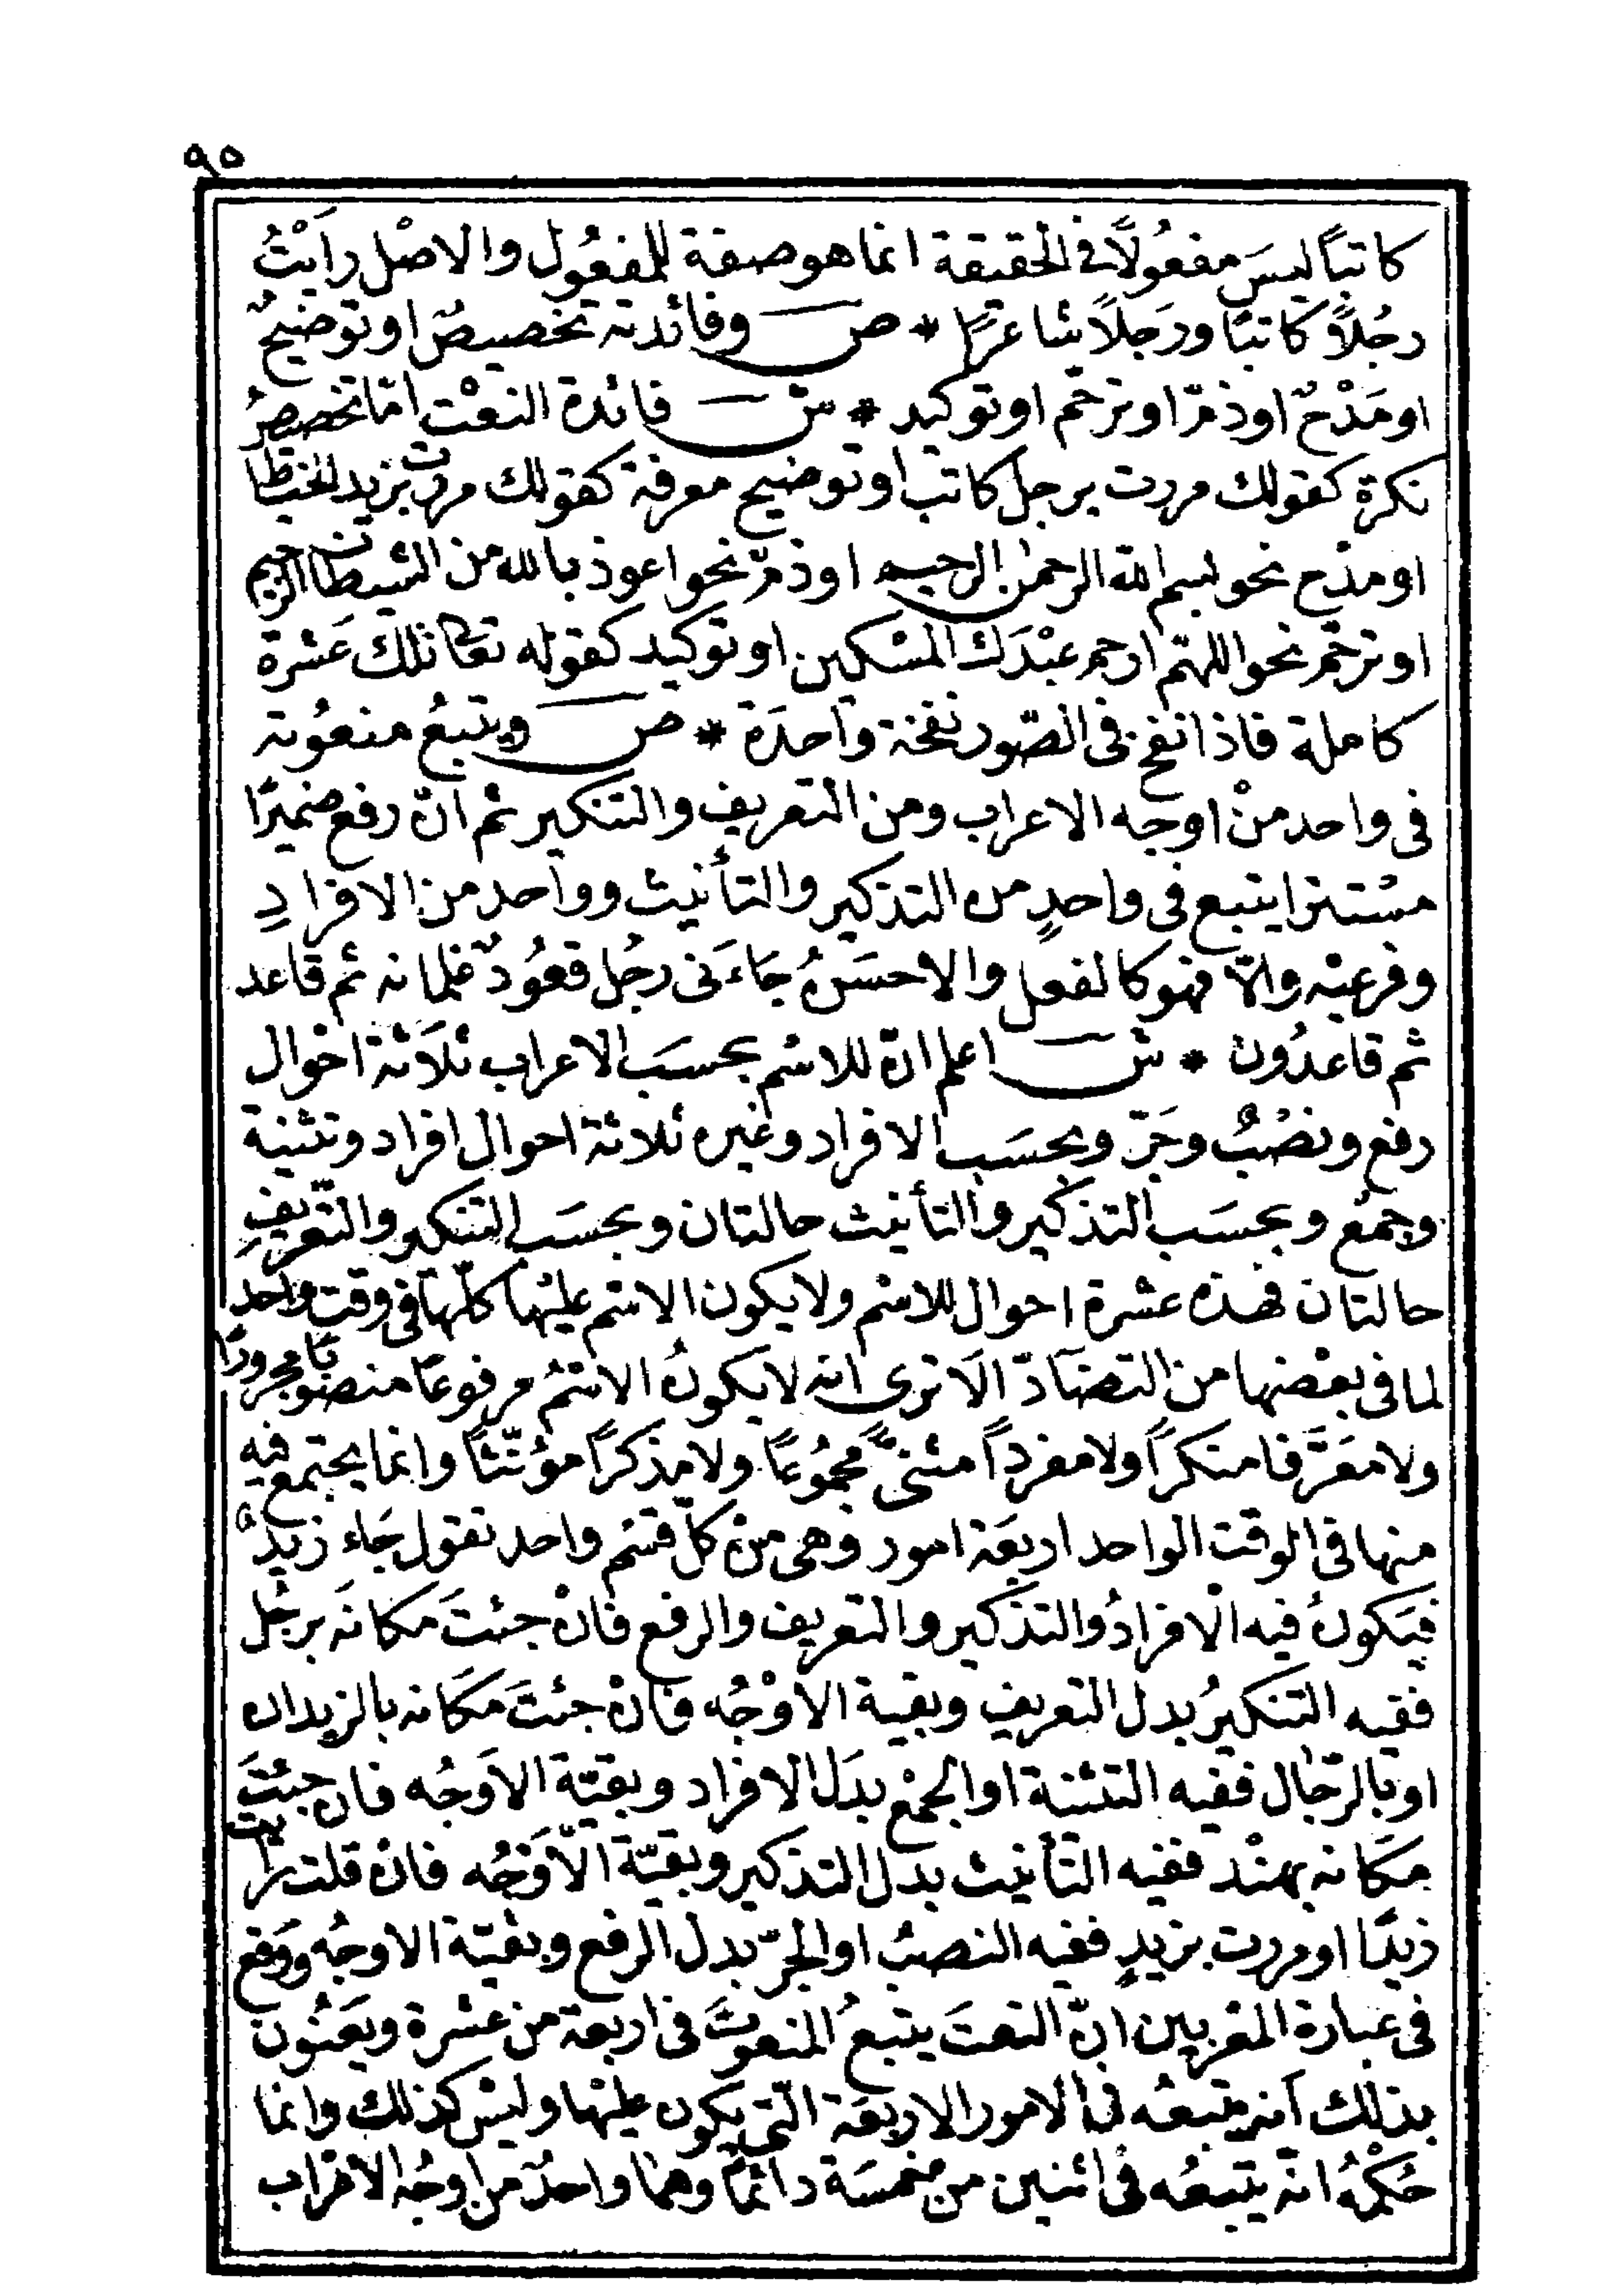 ٩٥
كاتبًا ليسَ مفعُولًا في الحقيقة انما هو صفة للمفعُول والاصْل رأيْتُ
رجُلًا كاتبًا ورَجلًا شاعرًا * ص وفائدته تخصيصٌ او توضيحٌ
او مَدْحٌ او ذمّ او ترحّم او توكيد * ش فائدة النعْت امّا تخصيصُ
نكرة كقولك مررت برجل كاتب او توضيح معرفة كقولك مررت بزيد الخياط
او مدْح نحو بسم الله الرحمن الرحيم او ذمّ نحو اعوذ بالله من الشيطان الرجيم
او ترحّم نحو اللهمّ ارحم عبْدَك المسْكين او توكيد كقوله تعالى تلك عَشرة
كاملة فاذا نفخ في الصّور نفخة واحدَة * ص ويتبعُ منعُوته
في واحد منْ اوجه الاعراب ومن التعريف والتنكير ثم انّ رفع ضميرًا
مسْتترا يتبع في واحدٍ من التذكير والتأنيث وواحد من الافرادِ
وفرعيْه والّا فهو كالفعل والاحسَنُ جَاءَنى رجُل قعُودٌ غلمانه ثم قاعد
ثم قاعدُون * ش اعلم انّ للاسْم بحسَب الاعراب ثلَاثة احْوال
رفع ونصْبٌ وجَرّ وبحسَب الافراد وغيره ثلاثة احوال افراد وتثنية
وجمْع وبحسَب التذكير والتأنيث حالتان وبحسَب التنكير والتعريفِ
حالتان فهذه عشرة احوال للاسْم ولا يكون الاسْم عليْها كلّها في وقت واحد
لما في بعْضها من التضَادّ الَا ترى انه لا يكونُ الاسْمُ مرفوعًا منصوبًا مجرورًا
ولا معَرَّفا منكرًا ولا مفردًا مثنىً مجمُوعًا ولا مذكرًا مؤنّثًا وانما يجتمع فيه
منها في الوقت الواحد اربعَة امور وهى منْ كلّ قسْم واحد تقول جَاء زيدٌ
فيَكونُ فيه الافرادُ والتذكير والتعريف والرفع فانْ جئتَ مكانَه برجُل
ففيه التنكيرُ بدل التعريف وبقية الاوْجُه فانْ جئتَ مكَانه بالزيدان
او بالرّجَال ففيه التثنية او الجمْع بدَل الافراد وبقيّة الاَوجُه فان جئتَ
مكَانه بهنْد ففيه التأنيث بدل التذكير وبقيّة الاَوْجُه فانْ قلت رأيت
زيدًا او مررت بزيدٍ ففيه النصبُ او الجرّ بدل الرفع وبقيّة الاوجُه ووقع
في عبارة المعْربين انّ النعتَ يتبعُ المنعوتَ في اربعة من عشرة ويَعْنُون
بذلك اَنه يتبعُه في الامور الاربعَة التي يكون عليْها وليْس كذلك وانما
حُكْمُهُ انّه يتبعُه في اثنين من خمسَة دائمًا وهما واحدٌ من اوجُه الاعْراب